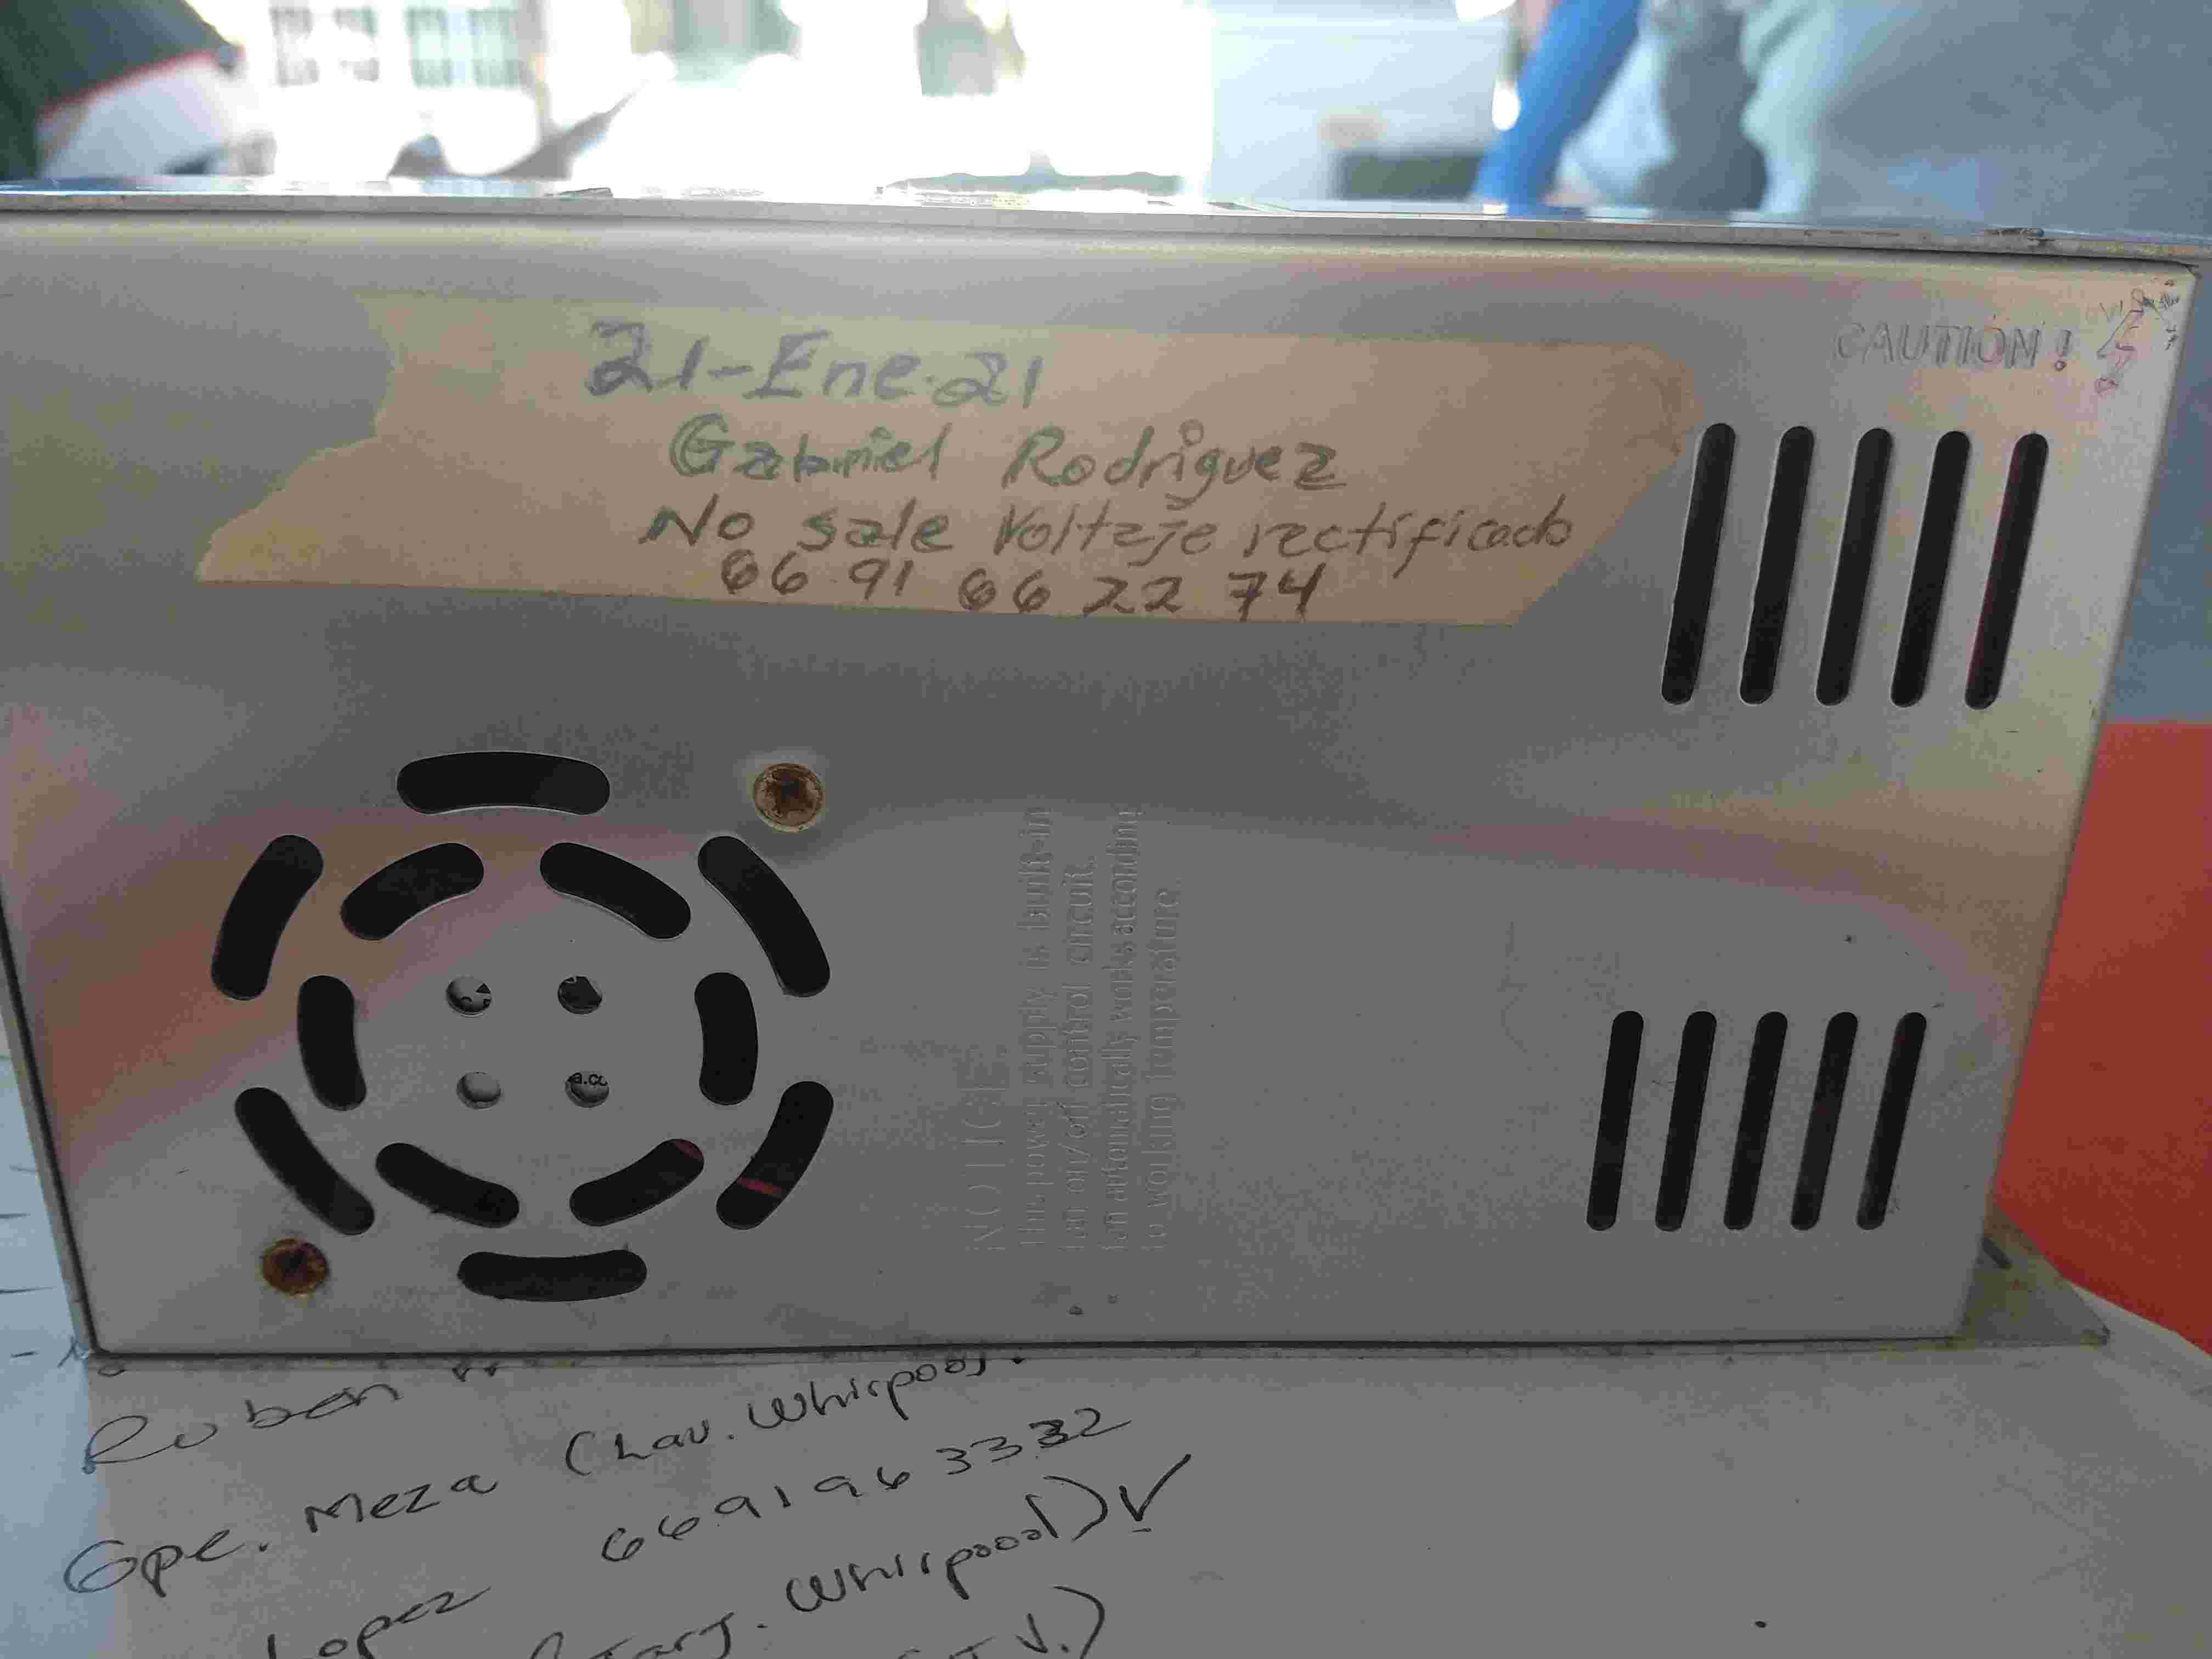 21-Ene-21
Gabriel Rodriguez
No sale Voltaje rectificado
66 91 66 22 74
CAUTION!
NOTICE
This power supply is built-in
fan on/off control circuit.
fan automatically works according
to working temperature.
a.co
Ruben
Gpe. Meza (Lav. Whirpool.
6691963332
Lopez (Tarj. Whirpoool) ✓
T V.)